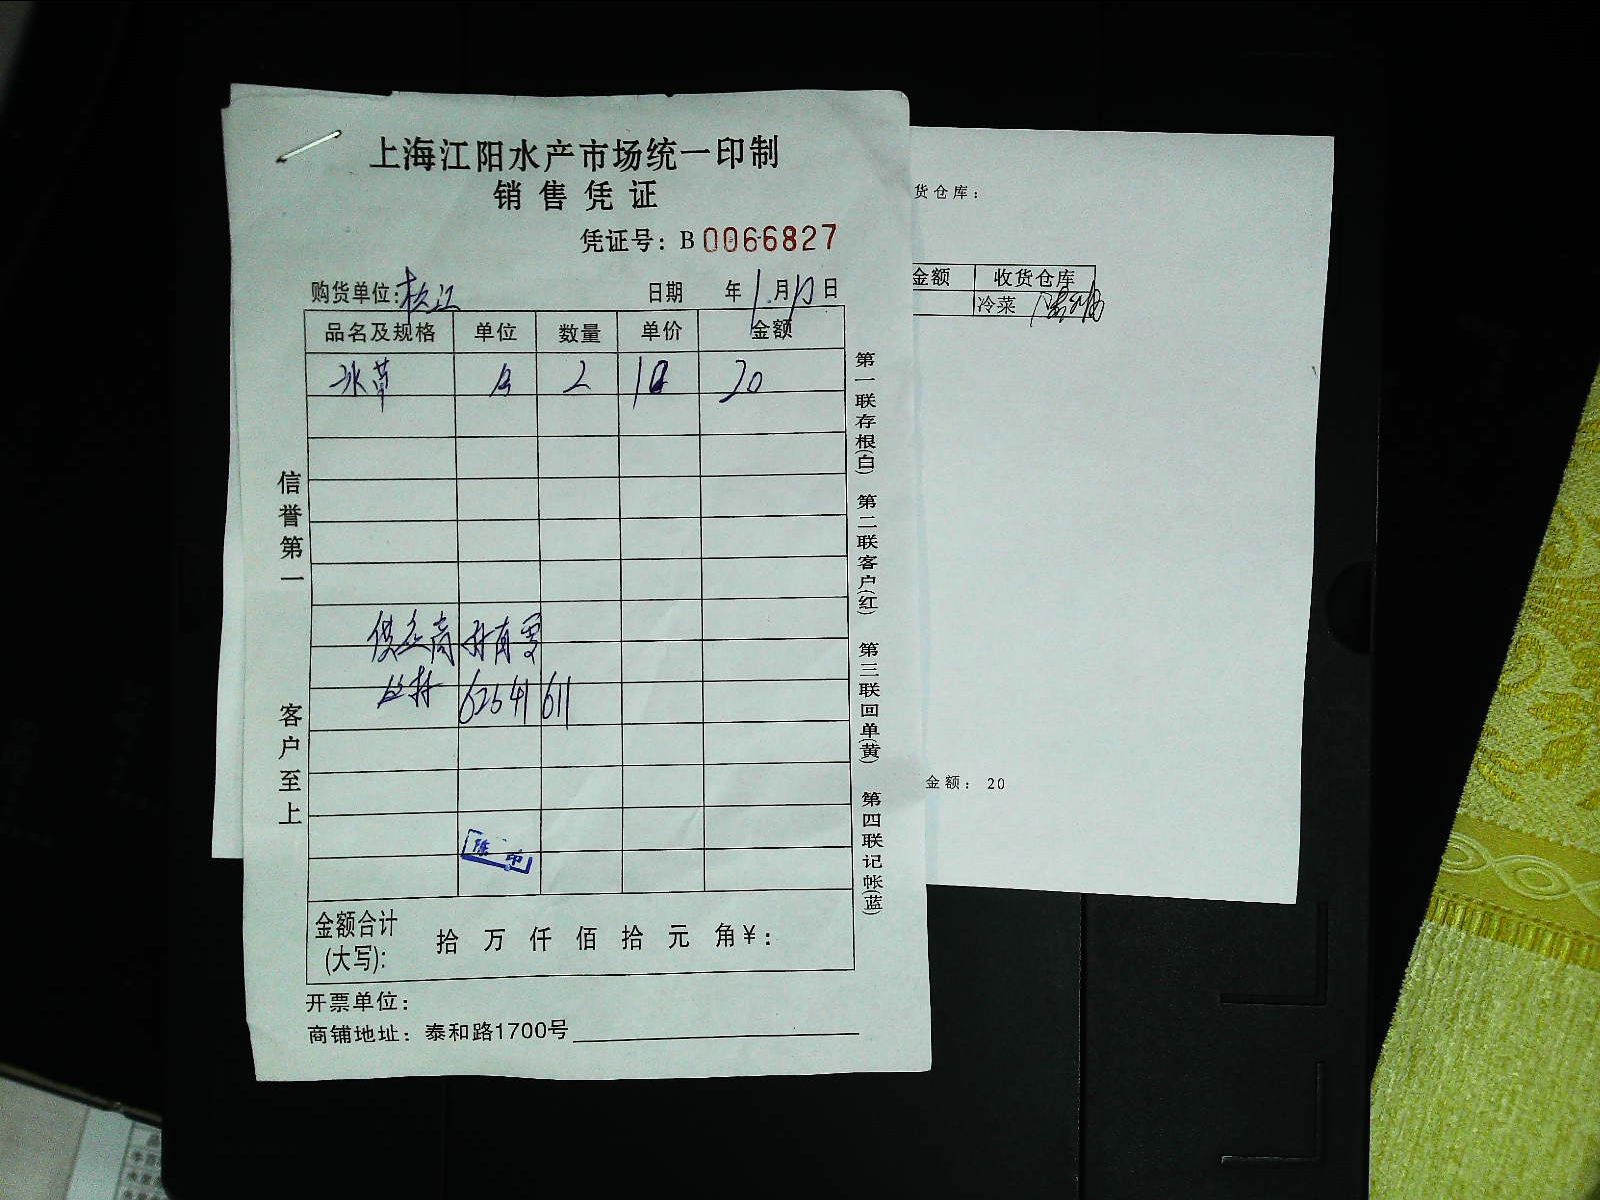 上海江阳水产市场统一印制
销售凭证
凭证号：B 0066827
购货单位：松江 日期 年 1月 日
品名及规格 单位 数量 单价 金额
冰草 2 10 20
供应商 孙有雷
62541611
信誉第一
客户至上
第一联存根(白) 第二联客户(红) 第三联回单(黄) 第四联记帐(蓝)
金额合计(大写)： 拾 万 仟 佰 拾 元 角 ¥：
开票单位：
商铺地址：泰和路1700号
货仓库：
金额 收货仓库
冷菜
金额：20